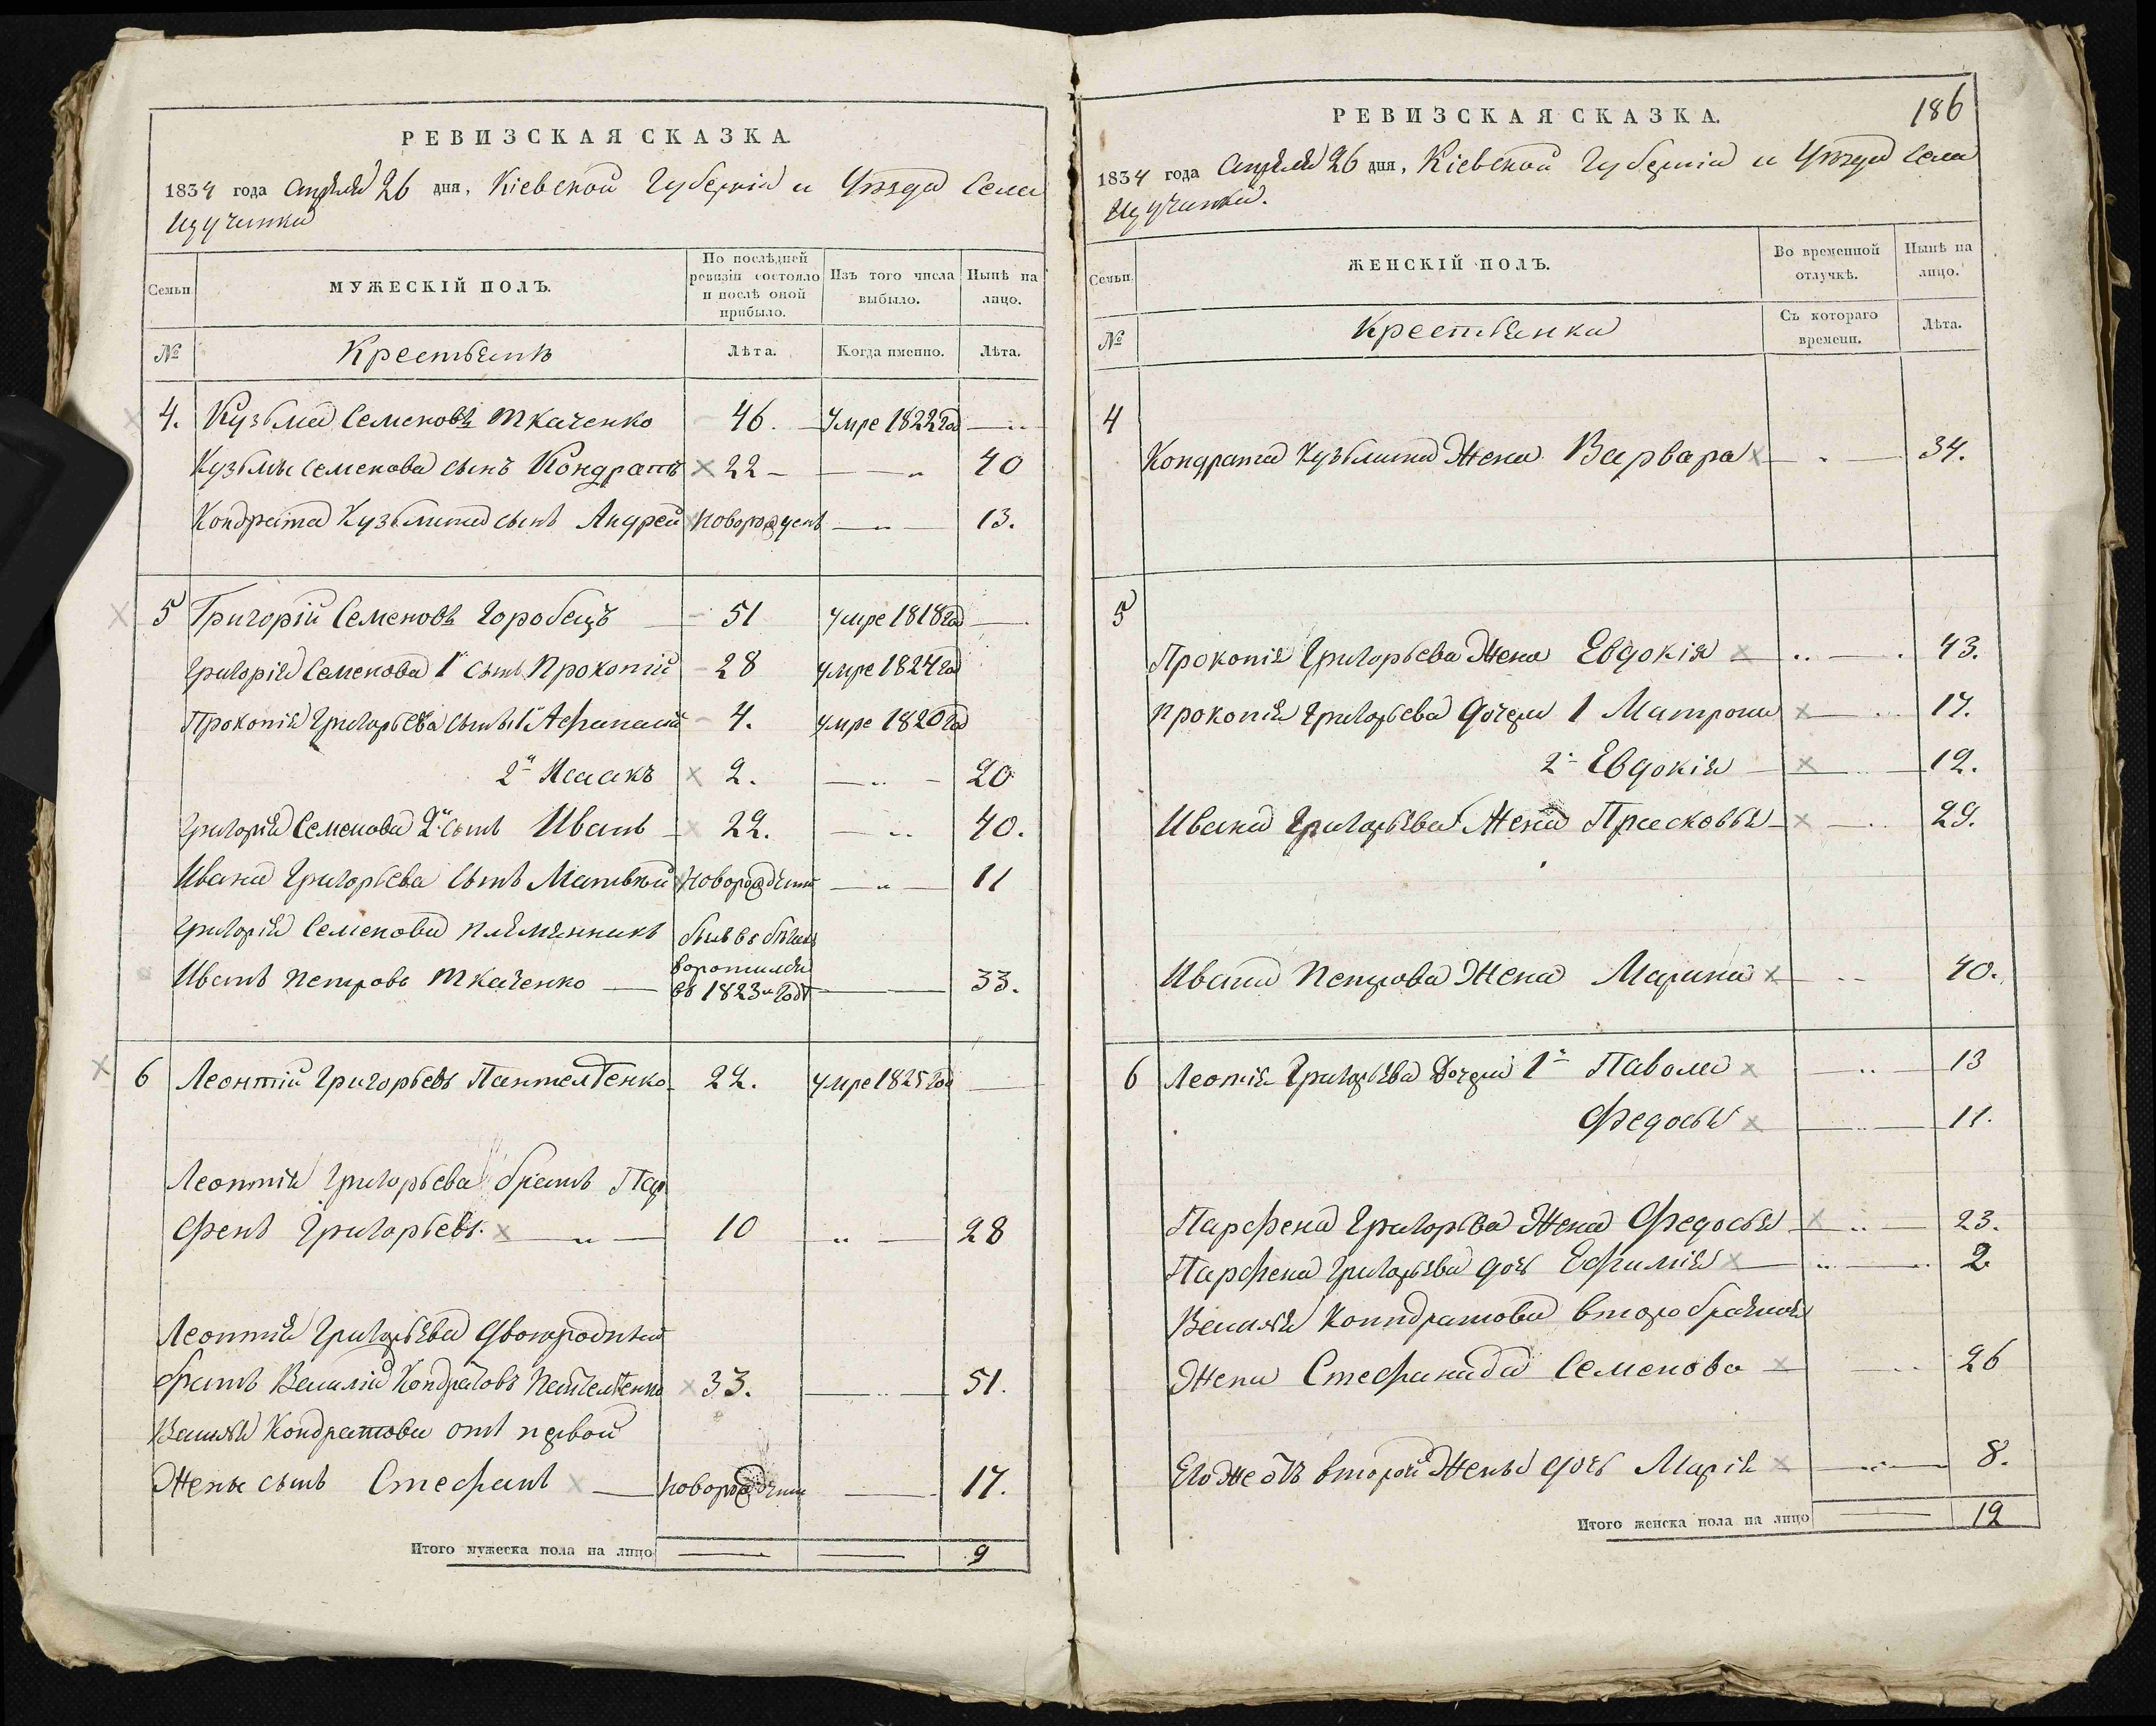 РЕВИЗСКАЯ СКАЗКА.
1834 года Апрѣля 26 дня, Кіевской Губерніи и Уѣзда Села
Кузьма Семеновъ Ткаченко
МУЖЕСКІЙ ПОЛЪ.
Семьи
По послѣдней ревизіи состояло и послѣ оной прибыло.
Изъ того числа выбыло.
Нынѣ на лицо.
№
Крестьянѣ
Лѣта.
Когда именно.
Лѣта.
4. Кузьма Семеновъ Ткаченко 46. Умре 1822 год
Кузьмы Семенова сынъ Кондратъ 22 40
Кондрата Кузьмина сынъ Андрей новорожденъ 13.
5 Григорій Семеновъ Горобецъ 51 умре 1818 год
Григорія Семенова 1й сынъ Прокопій 28 умре 1824 год
Прокопія Григорьева сыны 1й Афанасій 4. умре 1820 год
2й Исаакъ 2. 20
Григорія Семенова 2й сынъ Иванъ 22. 40.
Ивана Григорьева сынъ Матвѣй новорожденъ 11
Григорія Семенова племянникъ был въ бѣгахъ
Иванъ Петровъ Ткаченко воротился въ 1823м годѣ 33.
6 Леонтій Григорьевъ 22. умре 1825 год
Леонтія Григорьева братъ Пар
фенъ Григорьевъ. 10 28
Леонтія Григорьева двоюродный
братъ Василій Кондратовъ 33. 51.
Василія Кондратова отъ первой
жены сынъ Стефанъ новорожденъ 17.
Итого мужеска пола на лицо 9
186
РЕВИЗСКАЯ СКАЗКА.
1834 года Апрѣля 26 дня, Кіевской Губерніи и Уѣзда Села
Семьи
ЖЕНСКІЙ ПОЛЪ.
Во временной отлучкѣ.
Нынѣ на лицо.
№
Крестьянки
Съ котораго времени.
Лѣта.
4
Кондрата Кузьмина Жена Варвара 34.
5
Прокопія Григорьева Жена Евдокія 43.
Прокопія Григорьева дочери 1 Матрона 17.
2я Евдокія 12.
Ивана Григорьева Жена Прасковья 29.
Ивана Петрова Жена Марина 40.
6 Леонтія Григорьева Дочери 1я 13
Федосья 11.
Парфена Григорьева Жена Федосья 23.
Парфена Григорьева дочь Ефимія 2
Василія Кондратова второбрачная
Жена Стефанида Семенова 26
Его же отъ второй Жены дочь Марія 8.
Итого женска пола на лицо 12